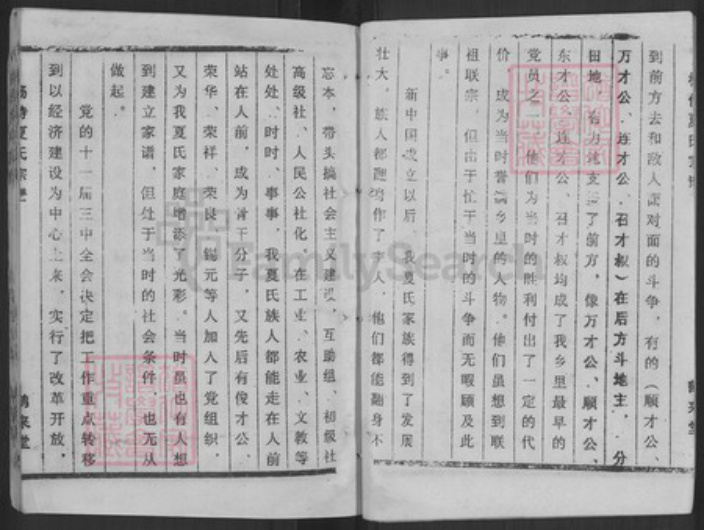 到前方去和敌人面对面的斗争，有的（顺才公、
万才公、连才公、召才叔）在后方斗地主，分
田地，有力地支援了前方，像万才公、顺才公、
东才公、连才公、召才叔均成了我乡里最早的
党员之一，他们为当时的胜利付出了一定的代
价，成为当时誉满乡里的人物。他们虽想到联
祖联宗，但由于忙于当时的斗争而无暇顾及此
事。
新中国成立以后，我夏氏家族得到了发展
壮大，族人都翻身作了主人，他们都能翻身不
忘本，带头搞社会主义建设，互助组、初级社
高级社、人民公社化。在工业、农业、文教等
处处、时时、事事，我夏氏族人都能走在人前
站在人前，成为骨干分子，又先后有俊才公、
荣华、荣祥、荣良、锡元等人加入了党组织，
又为我夏氏家庭增添了光彩。当时虽也有人想
到建立家谱，但处于当时的社会条件，也无从
做起。
党的十一届三中全会决定把工作重点转移
到以经济建设为中心上来，实行了改革开放，
夏氏宗谱
鹤来堂
FamilySearch